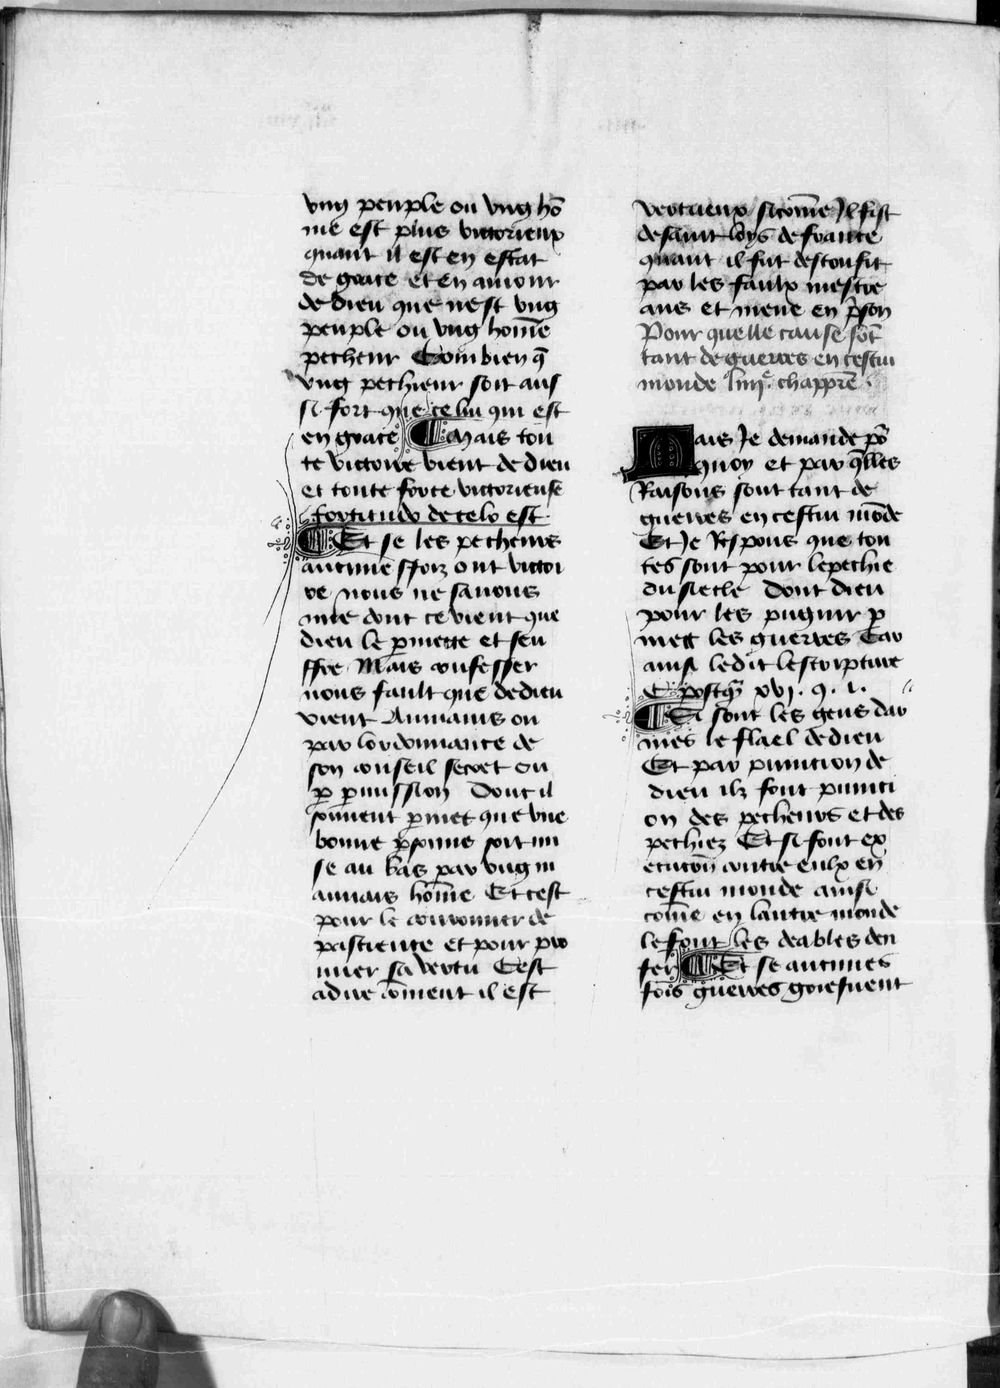 vng peuple ou vng hõ
me est plus victorieux
quant il est en estat
de grace et en amour
de dieu que nest vng
peuple ou vng hom̃e
pecheur Combien q̃
vng pechieur soit aus
si fort que celui qui est
en grace ¶ Mais tou
te victoire vient de dieu
et toute force victorieuse
fortitudo de celo est
¶ Et se les pecheurs
aucune ffoiz ont victoi
re nous ne sauons
mie dont ce vient que
dieu le p̲mette et seu
ffre Mais confesser
nous fault que de dieu
vient Aumains ou
par lordonnance de
son conseil secret ou
p̲ p̲mission Dont il
souuent p̲met que vne
bonne p̲sonne soit mi
se au bas par vng m
auuais hom̃e Et cest
pour le couronner de
pascience et pour pro
uuer sa vertu Cest
adire com̃ent il est
vertueux sicom̃e Il fist
de saint loys de france
quant il fut desconfit
par les faulx mescre
ans et mene en p̃son
Pour quelle cause sõt
tant de guerres en cestui
monde iiiiᵉ. chappr̃e
Mais Je demande po᷑
quoy et par q̃lles
Raisons sont tant de
guerres en cestui mõde
Et Je Respons que tou
tes sont pour le pechie
du siecle Dont dieu
pour les pugnir p̲
mett les guerres Car
ainsi le dit lescripture
C postq̃ xvj. q. i.
¶ Si sont les gens dar
mes le flael de dieu
Et par punicion de
dieu ilz font punici
on des pecheurs et des
pechiez Et si font ex
ecucion̄ contre eulx en
cestui monde ainsi
com̃e en lautre monde
le font les deables den
fer ¶ Et se aucunes
fois guerres griefuent